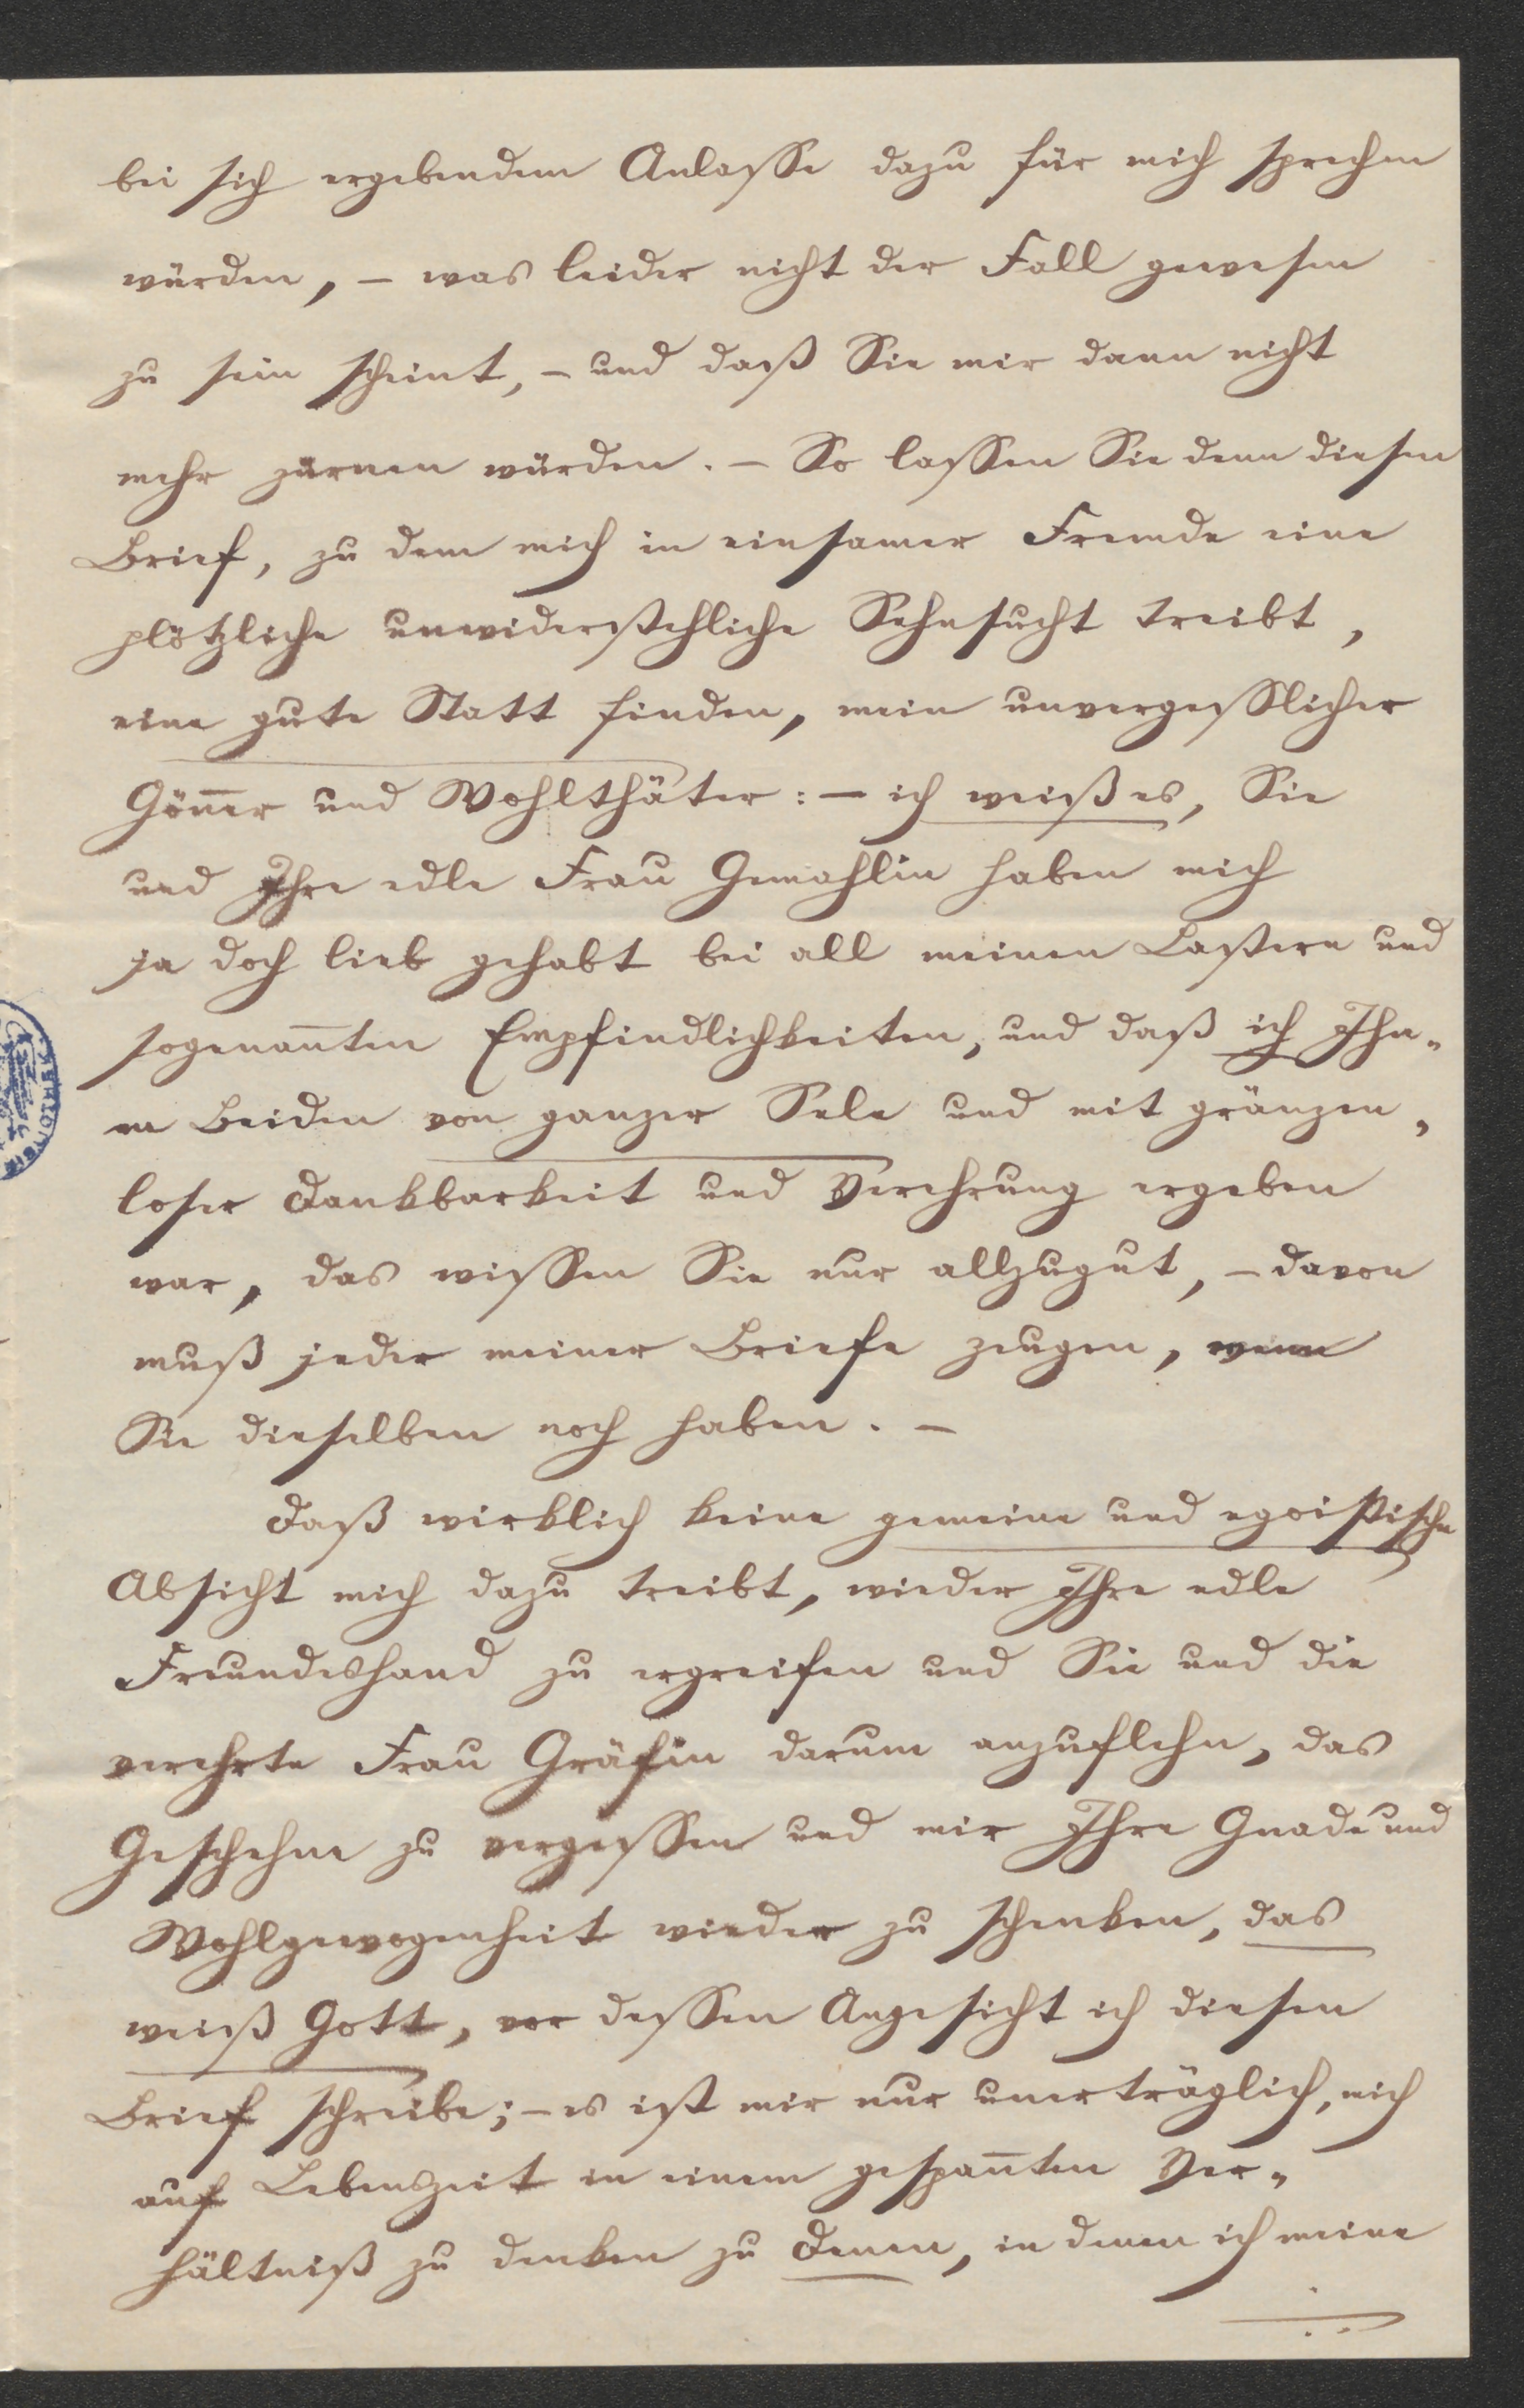 bei sich ergebendem Anlasse dazu für mich sprechen
würden, – was leider nicht der Fall gewesen
zu sein scheint, – und daß Sie mir dann nicht
mehr zürnen würden. – So lassen Sie denn diesen
Brief, zu dem mich in einsamer Fremde eine
plötzliche unwiderstehliche Sehnsucht treibt,
eine gute Statt finden, mein unvergesslicher
Göner und Wohlthäter: – ich weiß es, Sie
und Ihre edle Frau Gemahlin haben mich
ja doch lieb gehabt bei all meinen Lastern und
sogenanten Empfindlichkeiten, und daß ich Ihn„
en Beiden von ganzer Sele und mit gränzen„
loser Dankbarkeit und Verehrung ergeben
war, das wissen Sie nur allzugut, – davon
muß jeder meiner Briefe zeugen, wenn
Sie dieselben noch haben. –
Daß wirklich keine gemeine und egoistische
Absicht mich dazu treibt, wieder Ihre edle
Freundeshand zu ergreifen und Sie und die
verehrte Frau Gräfin darum anzuflehn, das
Geschehne zu vergessen und mir Ihre Gnade und
Wohlgewogenheit wieder zu schenken, das
weiß Gott, vor dessen Angesicht ich diesen
Brief schreibe; – es ist mir nur unerträglich, mich
auf Lebenszeit in einem gespanten Ver„
hältniß zu denken zu Denen, in denen ich meine